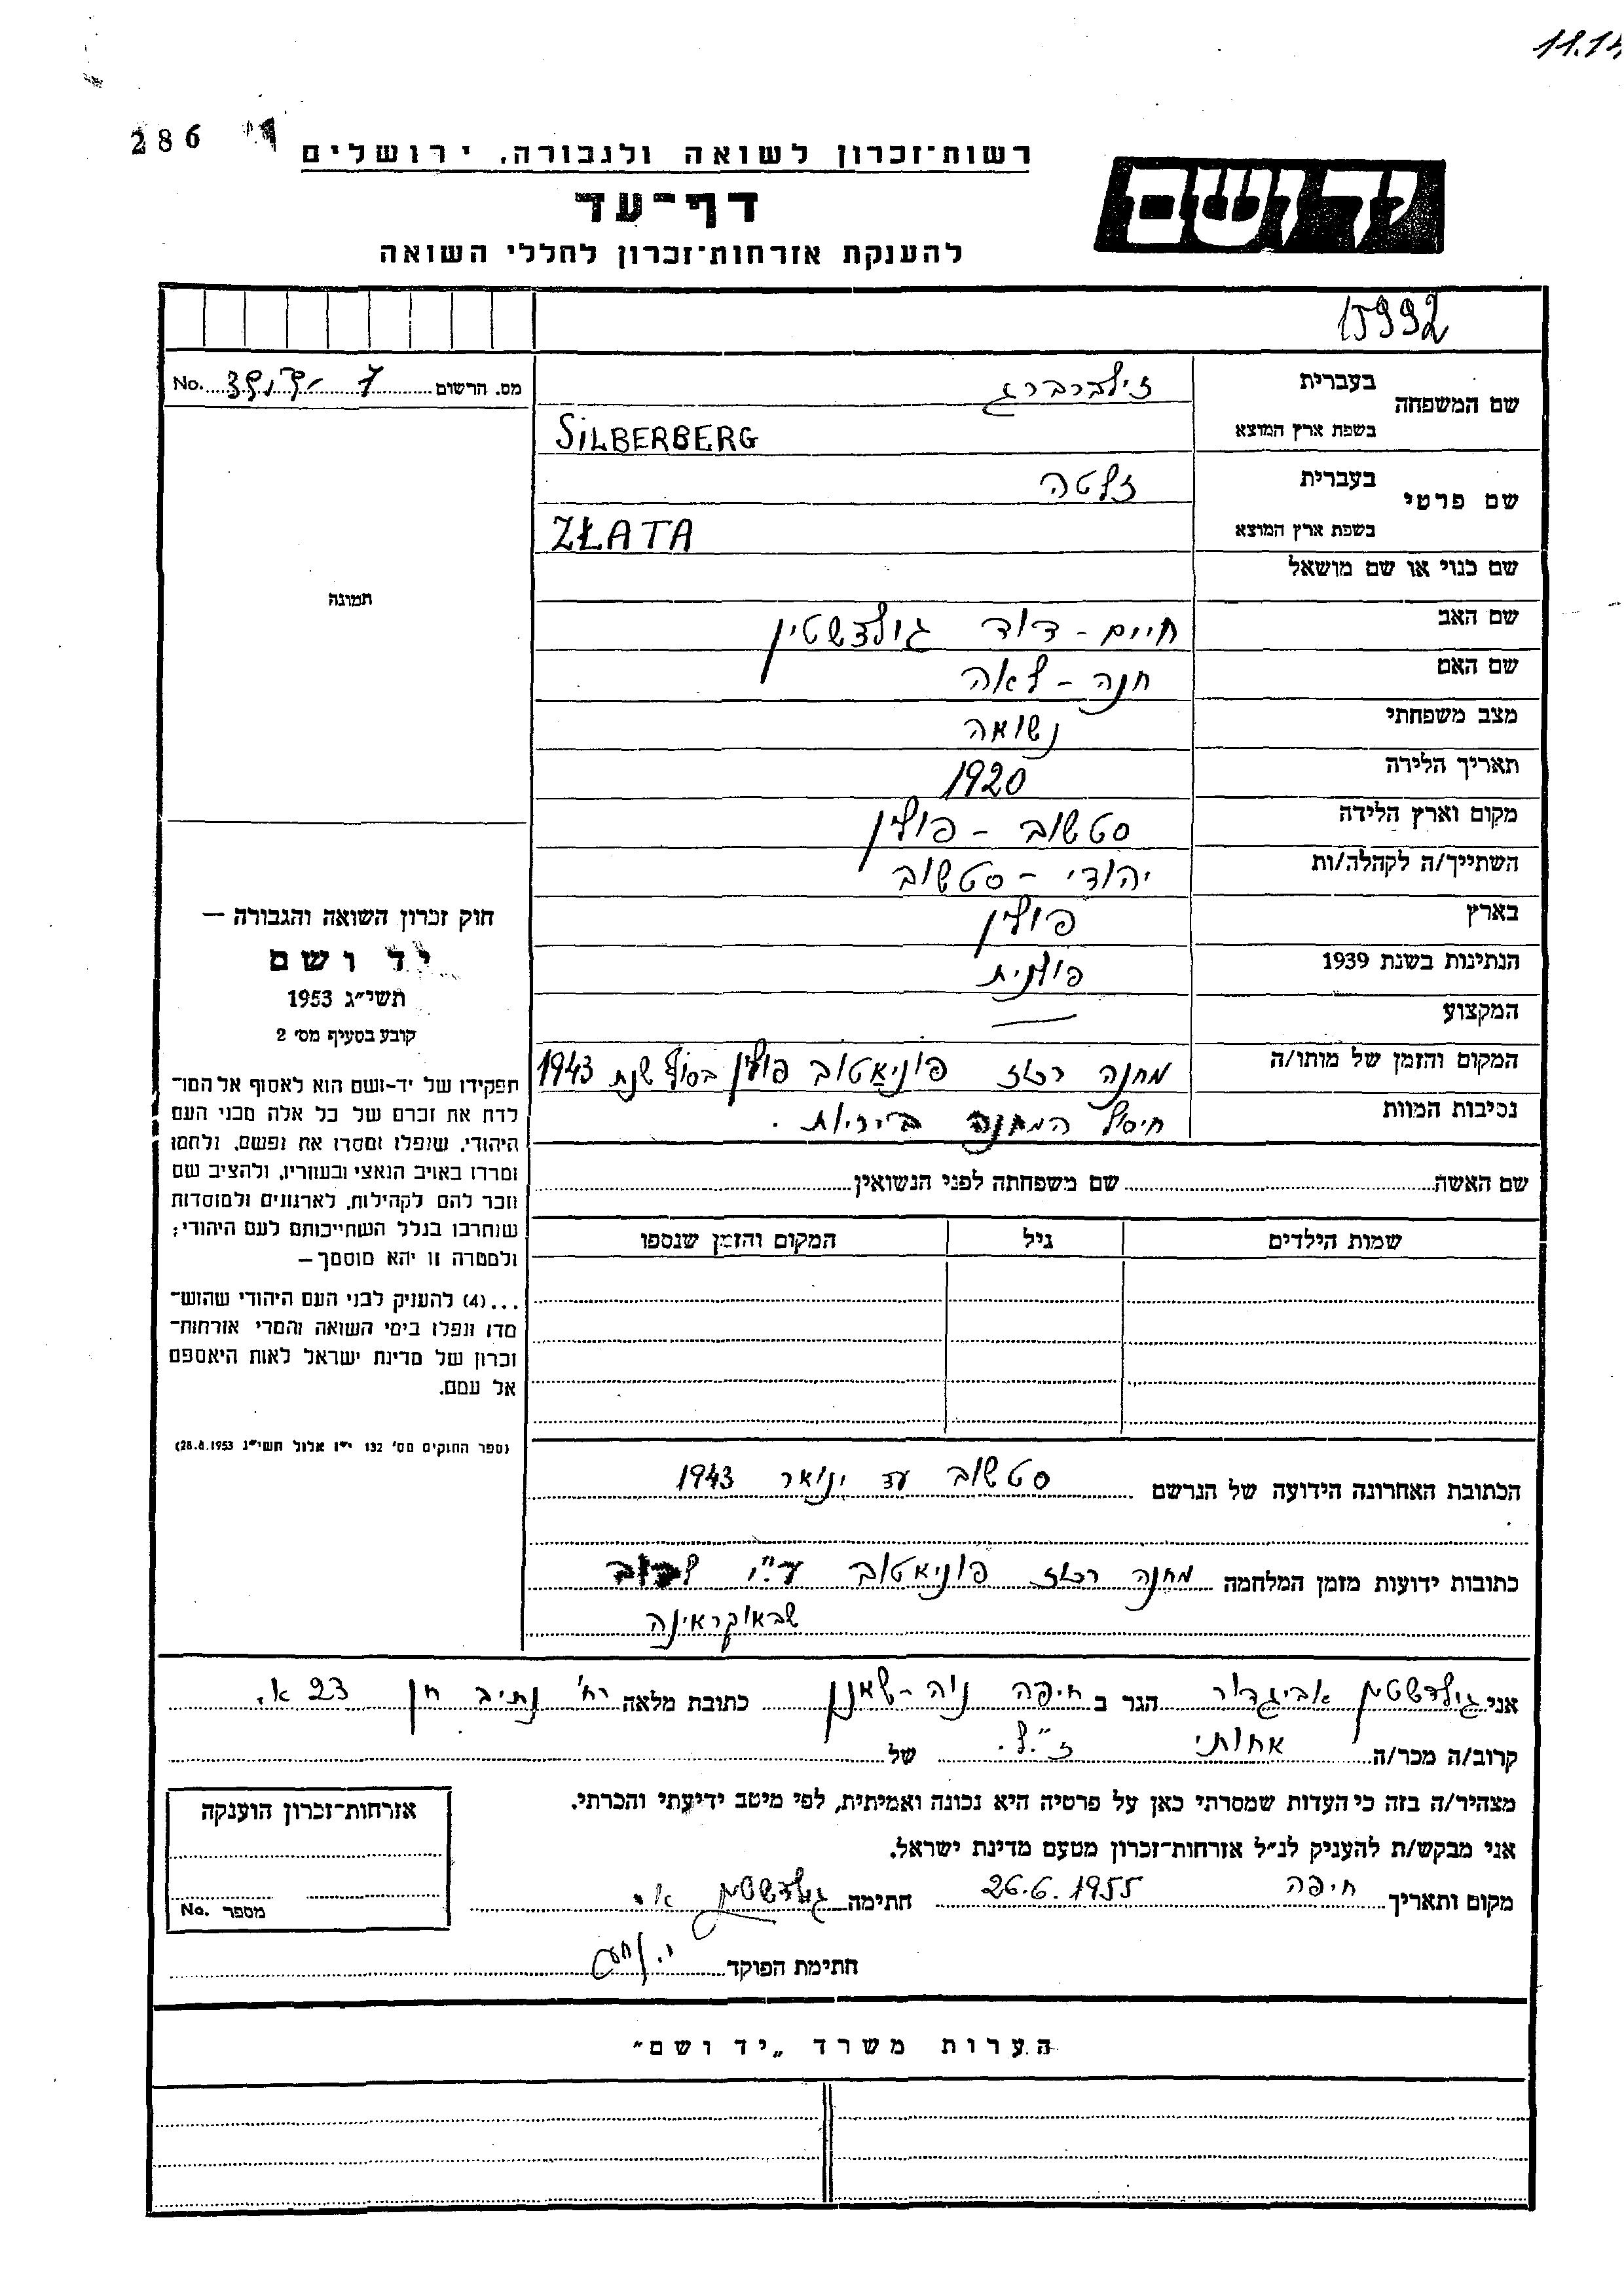 11.14
286
רשות־זכרון לשואה ולגבורה, ירושלים
יד ושם
דף־עד
להענקת אזרחות־זכרון לחללי השואה
15992
מס. הרשום No.
שם המשפחה
בעברית זילברברג
בשפת ארץ המוצא SILBERBERG
שם פרטי
בעברית זלטה
בשפת ארץ המוצא ZŁATA
שם כנוי או שם מושאל
תמונה
שם האב חיים - דוד גולדשטין
שם האם חנה - לאה
מצב משפחתי נשואה
תאריך הלידה 1920
מקום וארץ הלידה סטשוב - פולין
השתייך/ה לקהלה/ות יהודי - סטשוב
בארץ פולין
הנתינות בשנת 1939 פולנית
המקצוע —
המקום והזמן של מותו/ה מחנה רכוז פוניאטוב פולין בסוף שנת 1943
נסיבות המוות חיסול המחנה ביריות.
שם האשה שם משפחתה לפני הנשואין
שמות הילדים גיל המקום והזמן שנספו
חוק זכרון השואה והגבורה —
יד ושם
תשי״ג 1953
קובע בסעיף מס׳ 2
תפקידו של יד-ושם הוא לאסוף אל המו־
לדת את זכרם של כל אלה מבני העם
היהודי, שנפלו ומסרו את נפשם, נלחמו
ומרדו באויב הנאצי ובעוזריו, ולהציב שם
וזכר להם לקהילות, לארגונים ולמוסדות
שנחרבו בגלל השתייכותם לעם היהודי;
ולמטרה זו יהא מוסמך—
...(4) להעניק לבני העם היהודי שהוש־
מדו ונפלו בימי השואה והמרי אזרחות־
זכרון של מדינת ישראל לאות היאספם
אל עמם.
(ספר החוקים מס׳ 132 י״ז אלול תשי״ג 28.8.1953)
הכתובת האחרונה הידועה של הנרשם סטשוב עד ינואר 1943
כתובות ידועות מזמן המלחמה מחנה רכוז פוניאטוב ע״י לבוב
שבאוקראינה
אני גולדשטין אביגדור הגר ב חיפה נוה-שאנן כתובת מלאה רח׳ נתיב חן 23 א.
קרוב/ה מכר/ה אחותי ז״ל. של
מצהיר/ה בזה כי העדות שמסרתי כאן על פרטיה היא נכונה ואמיתית, לפי מיטב ידיעתי והכרתי.
אני מבקש/ת להעניק לנ״ל אזרחות־זכרון מטעם מדינת ישראל.
מקום ותאריך חיפה 26.6.1955 חתימה גולדשטין א.
אזרחות־זכרון הוענקה
מספר No.
חתימת הפוקד
הערות משרד „יד ושם״